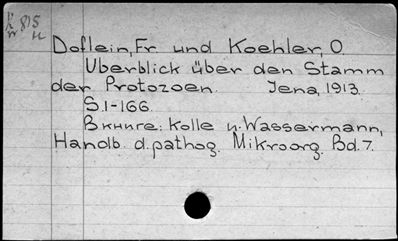 815
Doflein, Fr. und Koehler, O
Uberblick über den Stamm
der Protozoen. Jena, 1913.
S.1-166.
В книге: Kolle u. Wassermann,
Handb. d. pathog. Mikroorg. Bd. 7.